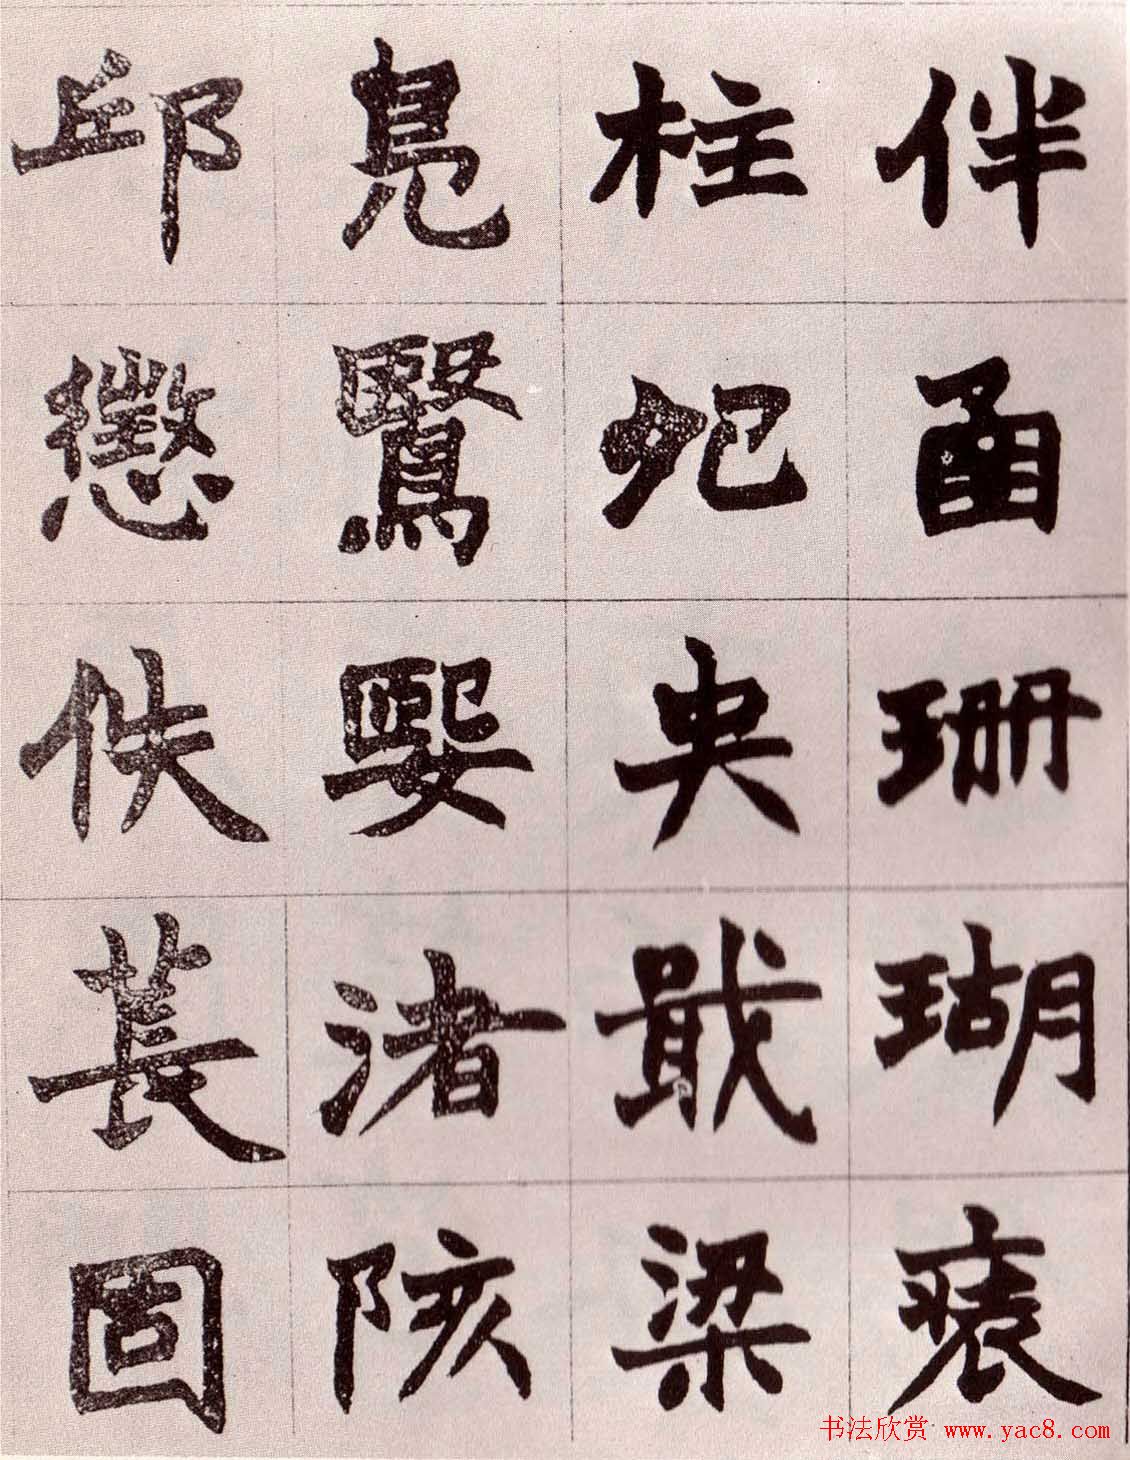 伴函珊瑚袠
柱央戢梁
鳧鷖渚陔
邱懲佚萇固
书法欣赏 www.yac8.com